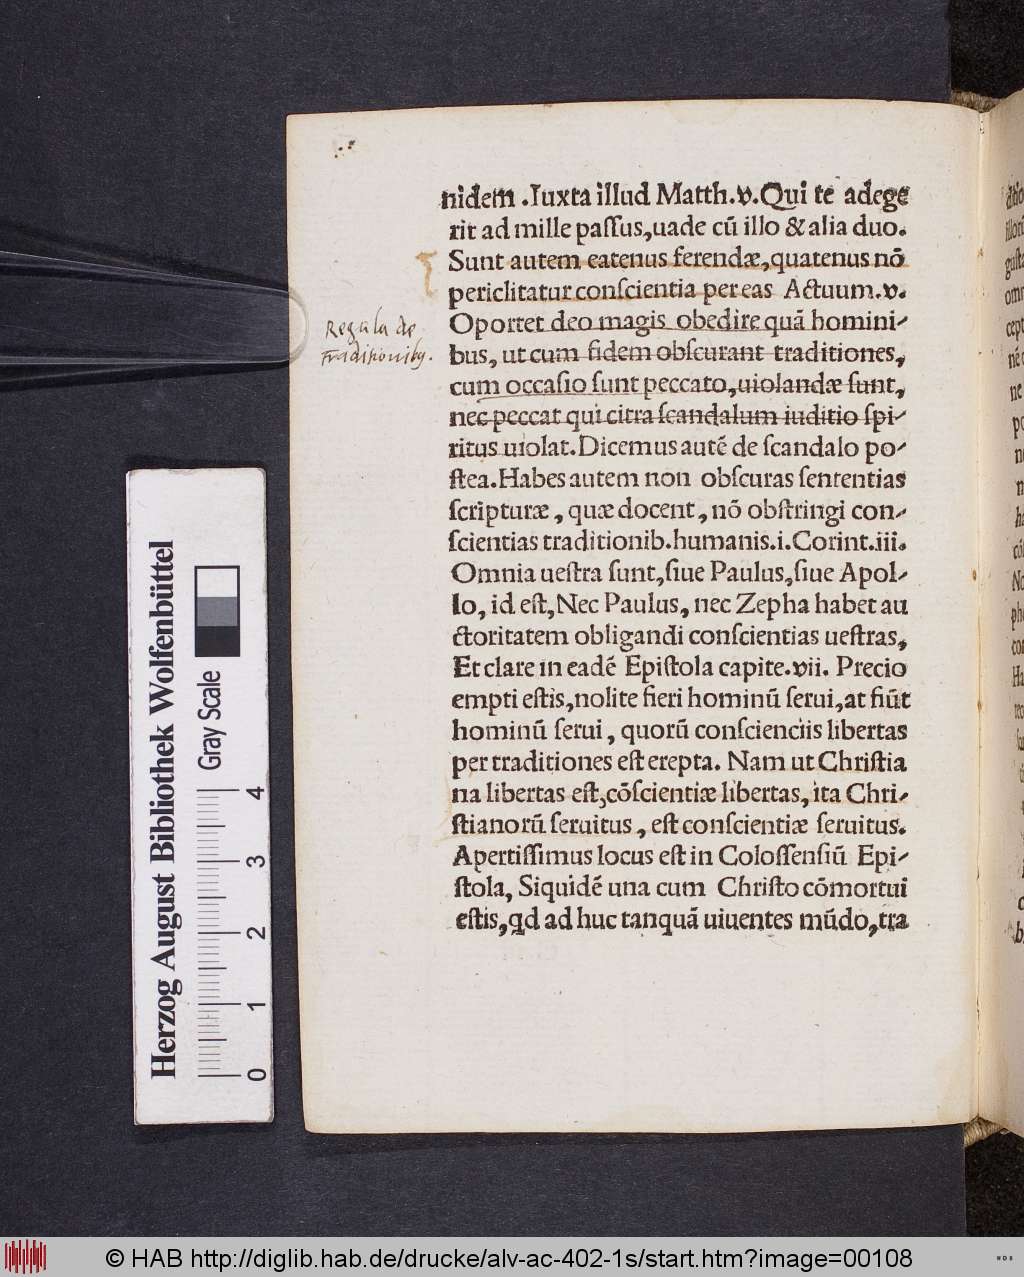 nidem .Iuxta illud Matth.v.Qui te adege
rit ad mille paſſus,uade cū illo & alia duo.
Sunt autem eatenus ferendæ,quatenus nō
periclitatur conſcientia per eas Actuum.v.
Oportet deo magis obedire quā homini-
bus, ut cum fidem obſcurant traditiones,
cum occaſio ſunt peccato,uiolandæ ſunt,
nec peccat qui citra ſcandalum iuditio ſpi-
ritus uiolat.Dicemus autē de ſcandalo po-
ſtea.Habes autem non obſcuras ſententias
ſcripturæ, quæ docent, nō obſtringi con-
ſcientias traditionib.humanis.i.Corint.iii.
Omnia ueſtra ſunt,ſiue Paulus,ſiue Apol-
lo, id eſt,Nec Paulus, nec Zepha habet au
ctoritatem obligandi conſcientias ueſtras,
Et clare in eadē Epiſtola capite.vii. Precio
empti eſtis,nolite fieri hominū ſerui,at fiūt
hominū ſerui, quorū conſcienciis libertas
per traditiones eſt erepta. Nam ut Chriſtia
na libertas eſt,cōſcientiæ libertas, ita Chri-
ſtianorū ſeruitus, eſt conſcientiæ ſeruitus.
Apertiſſimus locus eſt in Coloſſenſiū Epi-
ſtola, Siquidē una cum Chriſto cōmortui
eſtis,qd ad huc tanquā uiuentes mūdo,tra
Regula de
Traditionibq.
Herzog August Bibliothek Wolfenbüttel
Gray Scale
0 1 2 3 4
© HAB http://diglib.hab.de/drucke/alv-ac-402-1s/start.htm?image=00108